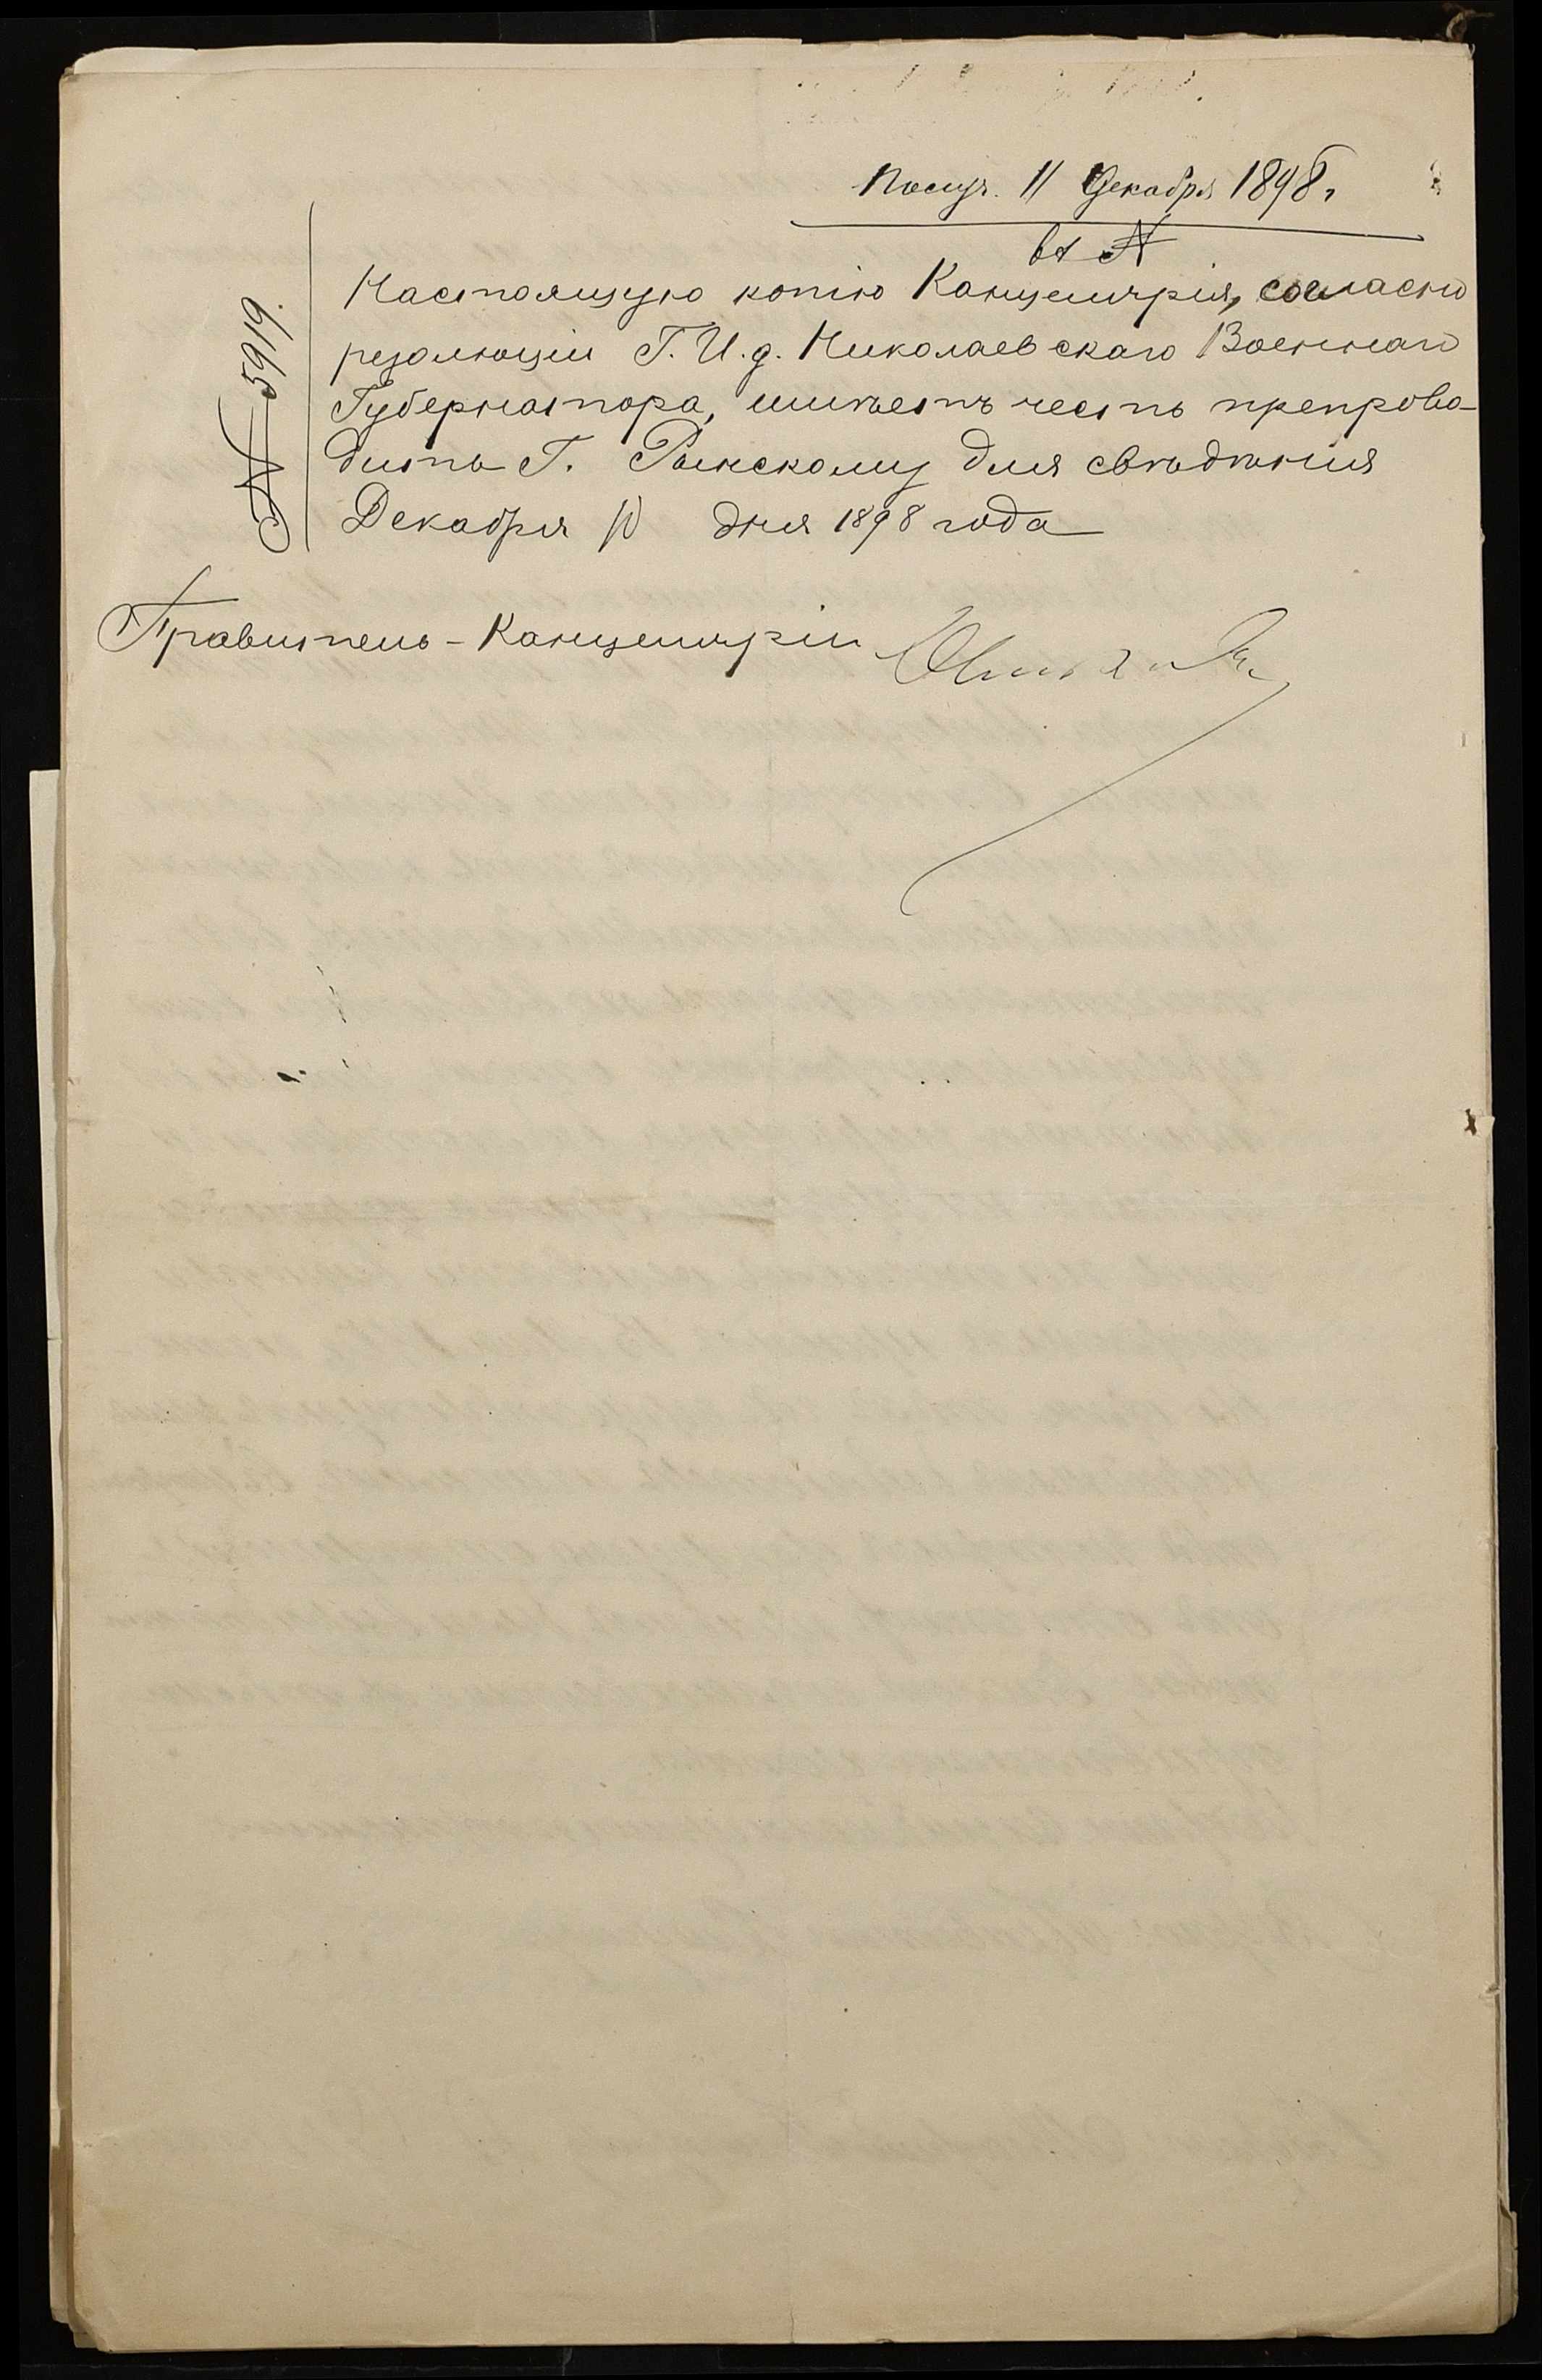 Получ. 11 Декабря 1898 г
вх №
№ 5919.
Настоящую копію Канцелярія, согласно
резолюціи Г. И. д. Николаевскаго Военнаго
Губернатора, имѣетъ честь препрово-
дить Г. Рынскому для свѣдѣнія
Декабря 10 дня 1898 года
Правитель-Канцеляріи